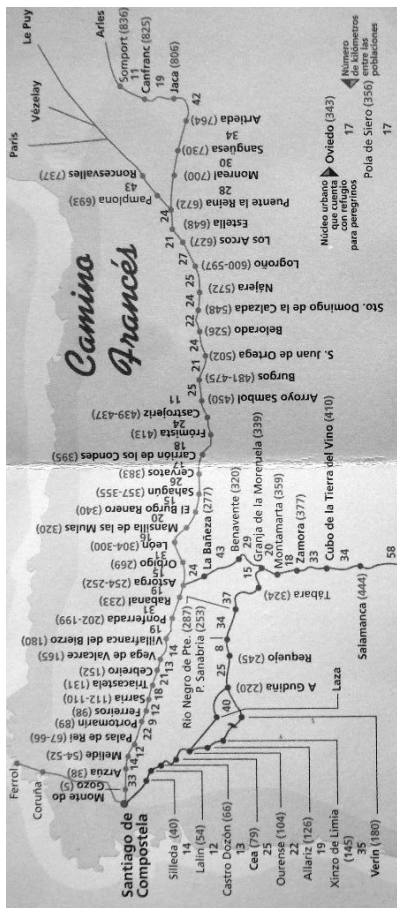 Camino
Francés
Le Puy
Vézelay
Paris
Arles
Somport (836)
11
Canfranc (825)
19
Jaca (806)
42
Artieda (764)
34
Sangüesa (730)
30
Monreal (700)
28
Puente la Reina (672)
Roncesvalles (737)
43
Pamplona (693)
24
Estella (648)
21
Los Arcos (627)
27
Logroño (600-597)
25
Nájera (572)
24
Sto. Domingo de la Calzada (548)
22
Belorado (526)
24
S. Juan de Ortega (502)
21
Burgos (481-475)
25
Arroyo Sambol (450)
11
Castrojeriz (439-437)
24
Frómista (413)
18
Carrión de los Condes (395)
17
Cervatos (383)
26
Sahagún (357-355)
15
El Burgo Ranero (340)
20
Mansilla de las Mulas (320)
16
León (304-300)
31
Orbigo (269)
15
Astorga (254-252)
19
Rabanal (233)
31
Ponferrada (202-199)
19
Villafranca del Bierzo (180)
14
Vega de Valcarce (165)
13
Cebreiro (152)
21
Triacastela (131)
18
Sarria (112-110)
12
Ferreiros (98)
9
Portomarín (89)
22
Palas del Rei (67-66)
12
Melide (54-52)
14
Arzúa (38)
33
Monte do
Gozo (5)
Ferrol
Coruña
Santiago de
Compostela
Silleda (40)
14
Lalín (54)
12
Castro Dozón (66)
13
Cea (79)
25
Ourense (104)
22
Allariz (126)
19
Xinzo de Limia
(145)
35
Verín (180)
Laza
40
A Gudiña (220)
25
Requejo (245)
8
P. Sanabria (253)
34
Río Negro de Pte. (287)
37
Tábara (324)
15
24
La Bañeza (277)
43
Benavente (320)
29
Granja de la Moreruela (339)
20
Montamarta (359)
18
Zamora (377)
33
Cubo de la Tierra del Vino (410)
34
Salamanca (444)
58
Número
de kilómetros
entre las
poblaciones
Oviedo (343)
17
Pola de Siero (356)
17
Núcleo urbano
que cuenta
con refugio
para peregrinos